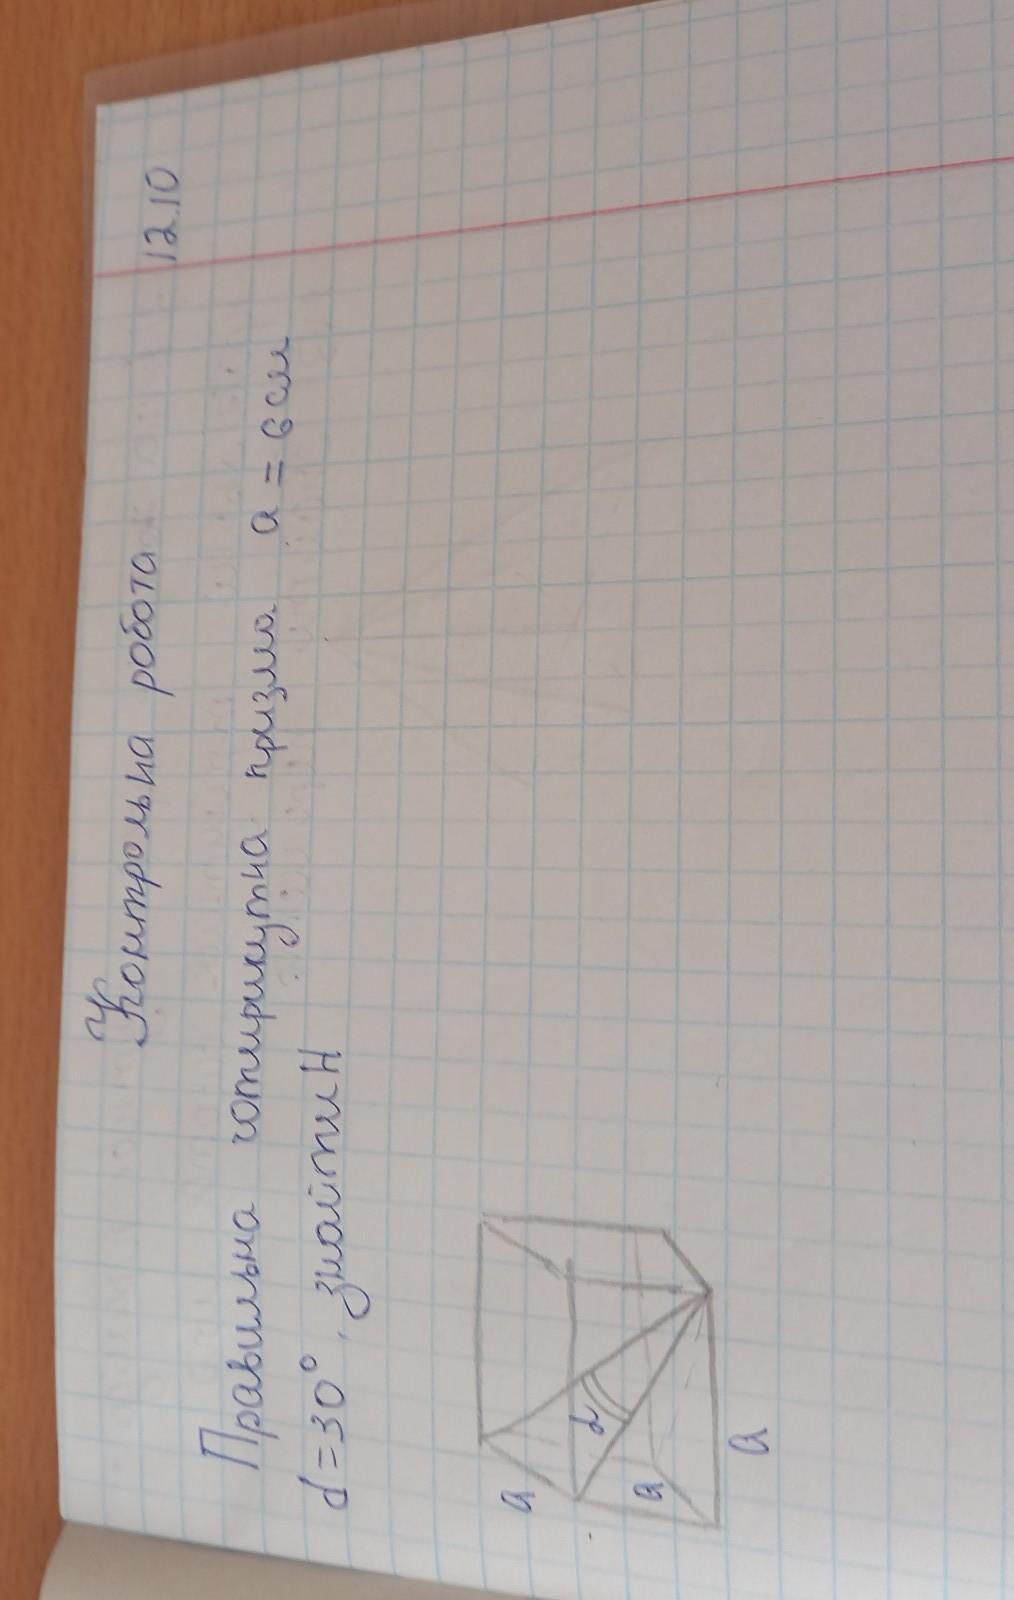 12.10
Контрольна робота
Правильна чотирикутна призма a = 6 см
α = 30°, знайти H
a
α
a
a